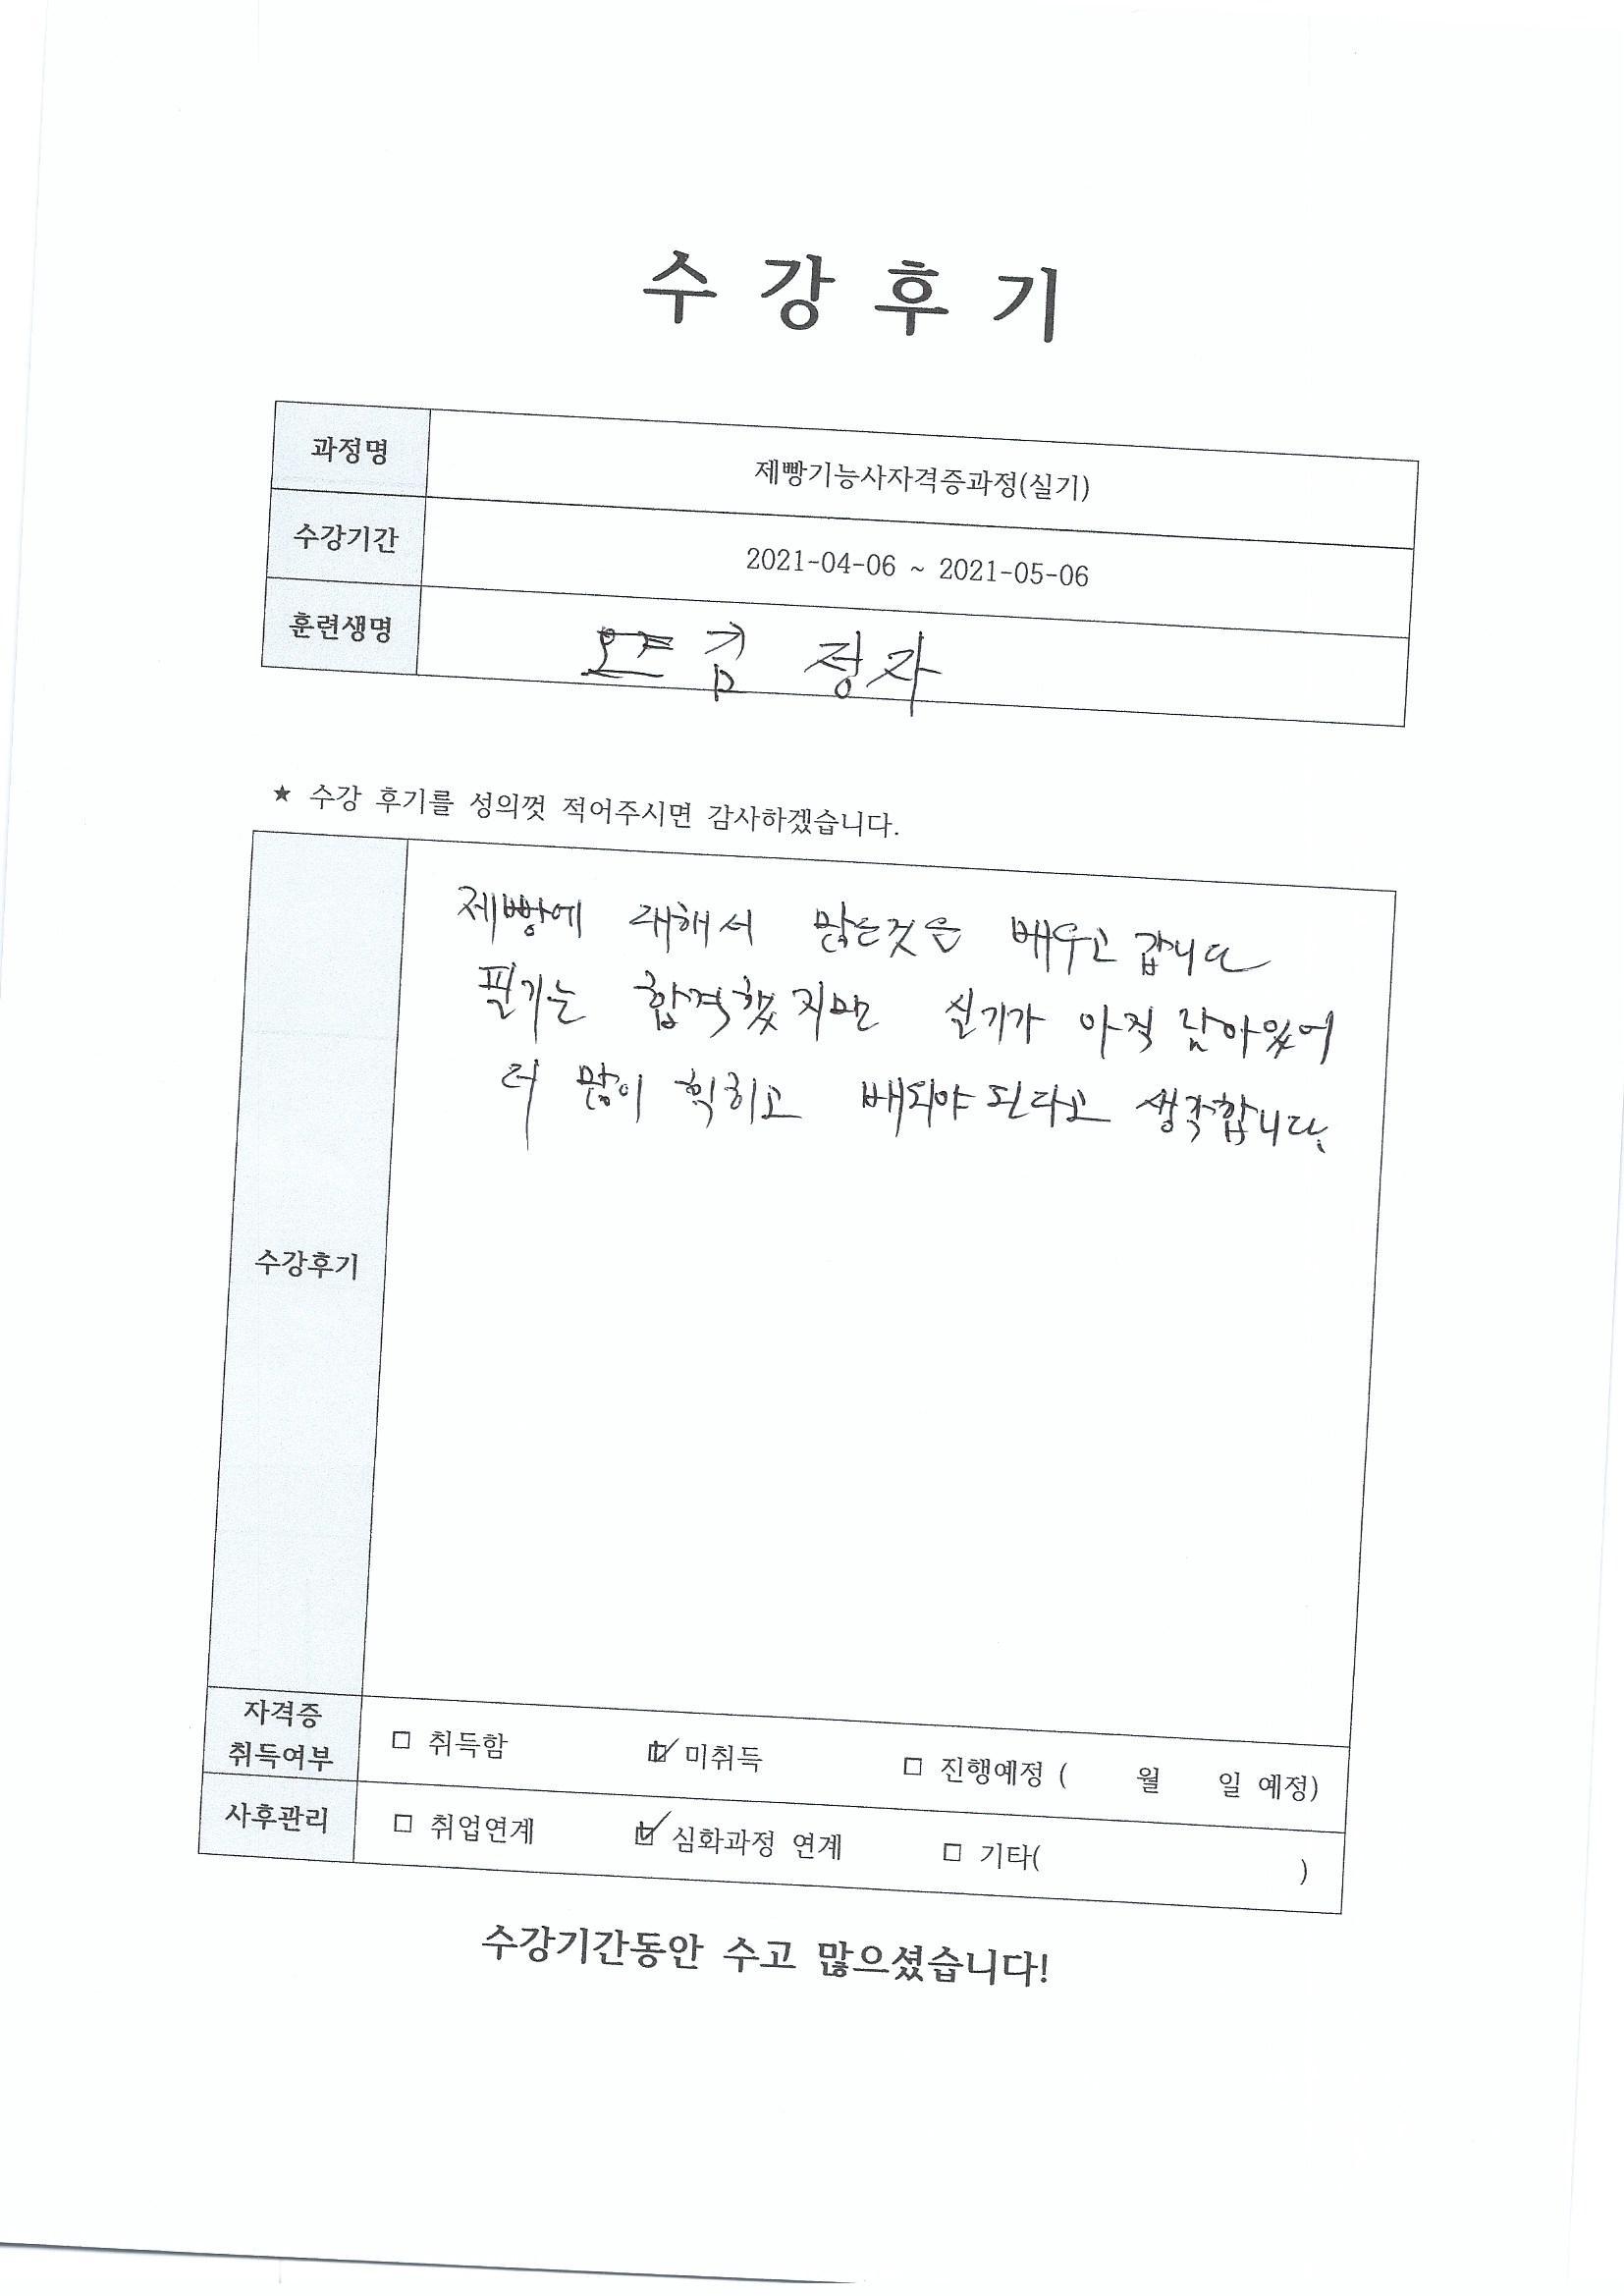 수강후기
과정명 제빵기능사자격증과정(실기)
수강기간 2021-04-06 ~ 2021-05-06
훈련생명 김 정자
★ 수강 후기를 성의껏 적어주시면 감사하겠습니다.
제빵에 대해서 많은것을 배우고 갑니다
필기는 합격했지만 실기가 아직 남아있어
더 많이 힉히고 배워야 된다고 생각합니다.
수강후기
자격증
취득여부 □ 취득함 ☑ 미취득 □ 진행예정 ( 월 일 예정)
사후관리 □ 취업연계 ☑ 심화과정 연계 □ 기타( )
수강기간동안 수고 많으셨습니다!